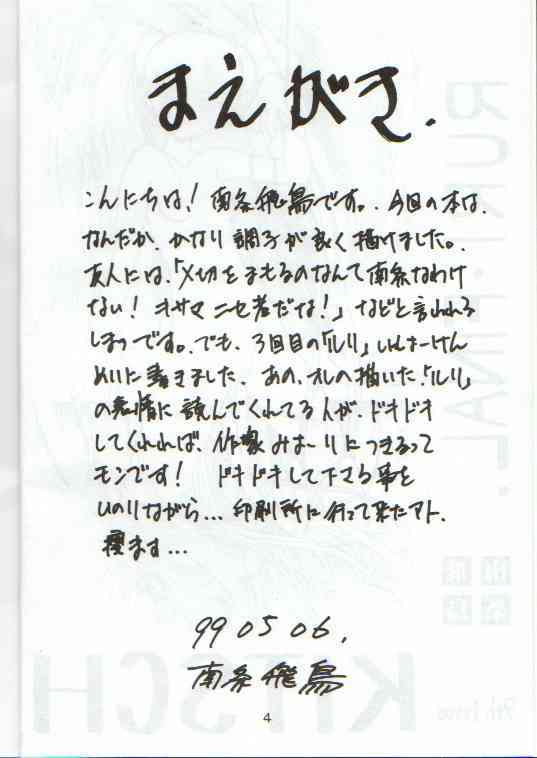 まえがき.
こんにちは、! 南条飛鳥です。. 今回の本は、
なんだか、かなり調子が良く描けました。.
友人には、「〆切をまもるのなんて南条なわけ
ない! キサマ ニセ者だな!」などと言われる
しまつです。. でも、3回目の「ルリ」いっしょーけん
めいに書きました、あの、オレの描いた「ルリ」
の表情に読んでくれてる人が、ドキドキ
してくれれば、作家みょーりにつきるって
モンです! ドキドキして下さる事を
いのりながら... 印刷所に行って来たアト、
寝ます...
99 05 06,
南条飛鳥
4
RURI・FINAL.
KITSCH
9th issue